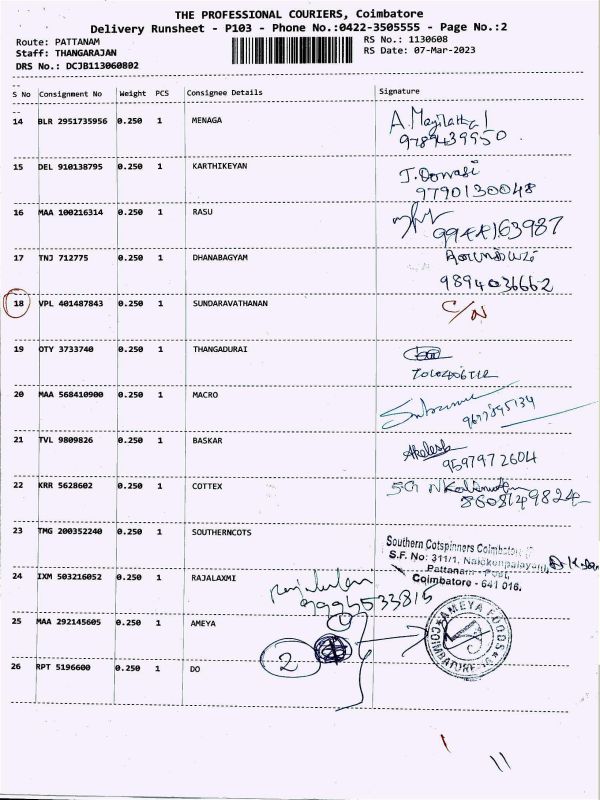 THE PROFESSIONAL COURIERS, Coimbatore
Delivery Runsheet - P103 - Phone No.:0422-3505555 - Page No.:2
Route: PATTANAM
Staff: THANGARAJAN
DRS No.: DCJB113060802
RS No.: 1130608
RS Date: 07-Mar-2023
S No Consignment No Weight PCS Consignee Details Signature
14 BLR 2951735956 0.250 1 MENAGA
15 DEL 910138795 0.250 1 KARTHIKEYAN
9790130048
16 MAA 100216314 0.250 1 RASU
9944163987
17 TNJ 712775 0.250 1 DHANABAGYAM
9894036662
18 VPL 401487843 0.250 1 SUNDARAVATHANAN C/N
19 OTY 3733740 0.250 1 THANGADURAI
20 MAA 568410900 0.250 1 MACRO
9677895134
21 TVL 9809826 0.250 1 BASKAR Akalesh
9597972604
22 KRR 5628602 0.250 1 COTTEX
8608149824
23 TMG 200352240 0.250 1 SOUTHERNCOTS
Southern Cotspinners Coimbatore
S.F. No: 311/1, Naickenpalayam,
Pattanam Post,
Coimbatore - 641 016.
24 IXM 503216052 0.250 1 RAJALAXMI
25 MAA 292145605 0.250 1 AMEYA
AMEYA FOODS
COIMBATORE
26 RPT 5196600 0.250 1 DO
2